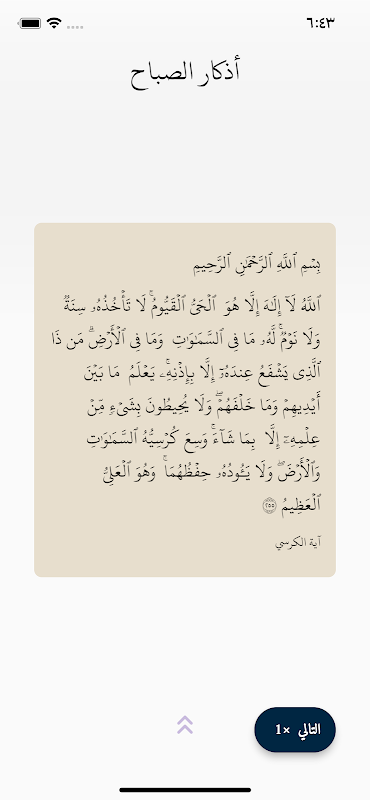 ٦:٤٣
أذكار الصباح
بِسْمِ ٱللَّهِ ٱلرَّحْمَٰنِ ٱلرَّحِيمِ
ٱللَّهُ لَآ إِلَٰهَ إِلَّا هُوَ ٱلْحَىُّ ٱلْقَيُّومُ ۚ لَا تَأْخُذُهُۥ سِنَةٌۭ
وَلَا نَوْمٌۭ ۚ لَّهُۥ مَا فِى ٱلسَّمَٰوَٰتِ وَمَا فِى ٱلْأَرْضِ ۗ مَن ذَا
ٱلَّذِى يَشْفَعُ عِندَهُۥٓ إِلَّا بِإِذْنِهِۦ ۚ يَعْلَمُ مَا بَيْنَ
أَيْدِيهِمْ وَمَا خَلْفَهُمْ ۖ وَلَا يُحِيطُونَ بِشَىْءٍۢ مِّنْ
عِلْمِهِۦٓ إِلَّا بِمَا شَآءَ ۚ وَسِعَ كُرْسِيُّهُ ٱلسَّمَٰوَٰتِ
وَٱلْأَرْضَ ۖ وَلَا يَـُٔودُهُۥ حِفْظُهُمَا ۚ وَهُوَ ٱلْعَلِىُّ
ٱلْعَظِيمُ ٢٥٥
آية الكرسي
التالي ×1